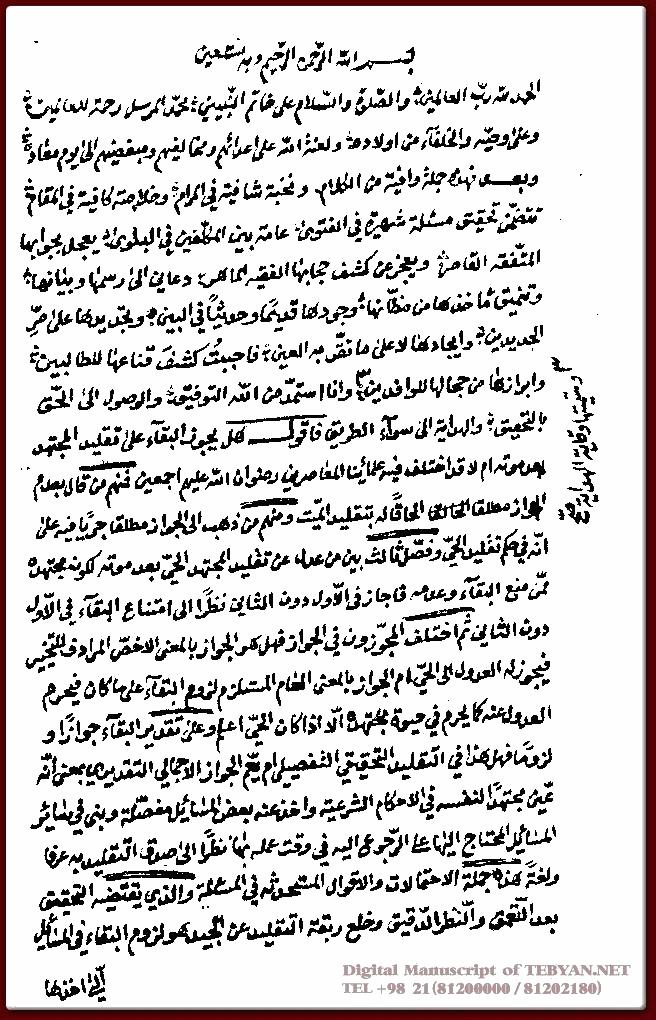 بسم الله الرحمن الرحيم وبه نستعين
الحمد لله ربّ العالمين والصلاة والسلام على خاتم النبيين محمّد المرسل رحمة للعالمين
وعلى وصيّه والخلفاء من اولاده ولعنة الله على اعدائهم ومخالفيهم ومبغضيهم الى يوم
وبعد فهذه جملة وافية من الكلام ونخبة شافية في المرام وخلاصة كافية في المقام
تتضمّن تحقيق مسئلة شهيرة في الفتوى عامة بين المكلّفين في البلوى يعجل بجوابها
المتفقه القاصر ويعجز عن كشف حجابها الفقيه الماهر دعاني الى رسمها وبيانها
وتنميق مأخذها من مظانها وجودها قديمًا وحديثًا في البين وتجديدها على مرّ
الجديدين وايجادها لا على ما تقرّ به العين فاجبت كشف قناعها للطالبين
وابرازها من حجالها للوافدين وانا استمدّ من الله التوفيق والوصول الى الحقّ
وسميتها وقاية الهداية صح
بالتحقيق والهداية الى سواء الطريق فاقول هل يجوز البقاء على تقليد المجتهد
بعد موته ام لا قد اختلف فيه علمائنا المعاصرين رضوان الله عليهم اجمعين فمنهم من قال بعدم
الجواز مطلقا الحاقًا له بتقليد الميّت ومنهم من ذهب الى الجواز مطلقا جريًا فيه على
انّه في حكم تقليد الحيّ وفصّل ثالث بين من عدل عن تقليد المجتهد الحيّ بعد موته لكونه مجتهده
ممّن منع البقاء وعدمه فاجاز في الأوّل دون الثاني نظرًا الى امتناع البقاء في الأوّل
دون الثاني ثم اختلف المجوّزون في الجواز فهل هو الجواز بالمعنى الاخصّ المرادف للتخيير
فيجوز له العدول الى الحيّ ام الجواز بالمعنى العام المستلزم لزوم البقاء على ما كان فيحرم
العدول عنه كما يحرم في حيوة مجتهده الّا اذا كان الحيّ اعلم وعلى تقدير البقاء جوازًا و
لزومًا فهل هذا في التقليد التحقيقي التفصيلي ام يعمّ الجواز الاجمالي التقديري بمعنى انّه
عيّن مجتهدًا لنفسه في الاحكام الشرعية واخذ عنه بعض المسائل مفصّلة وبنى في سائر
المسائل المحتاج اليها على الرجوع اليه في وقت عمله بها نظرًا الى صدق التقليد به عرفا
ولغةً هذه جملة الاحتمالات والاقوال المستحدثه في المسئلة والذي يقتضيه التحقيق
بعد التعمّق والنظر الدقيق وخلع ربقة التقليد عن الجيد هو لزوم البقاء في المسائل
الّتي اخذها
Digital Manuscript of TEBYAN.NET
TEL +98 21(81200000 / 81202180)